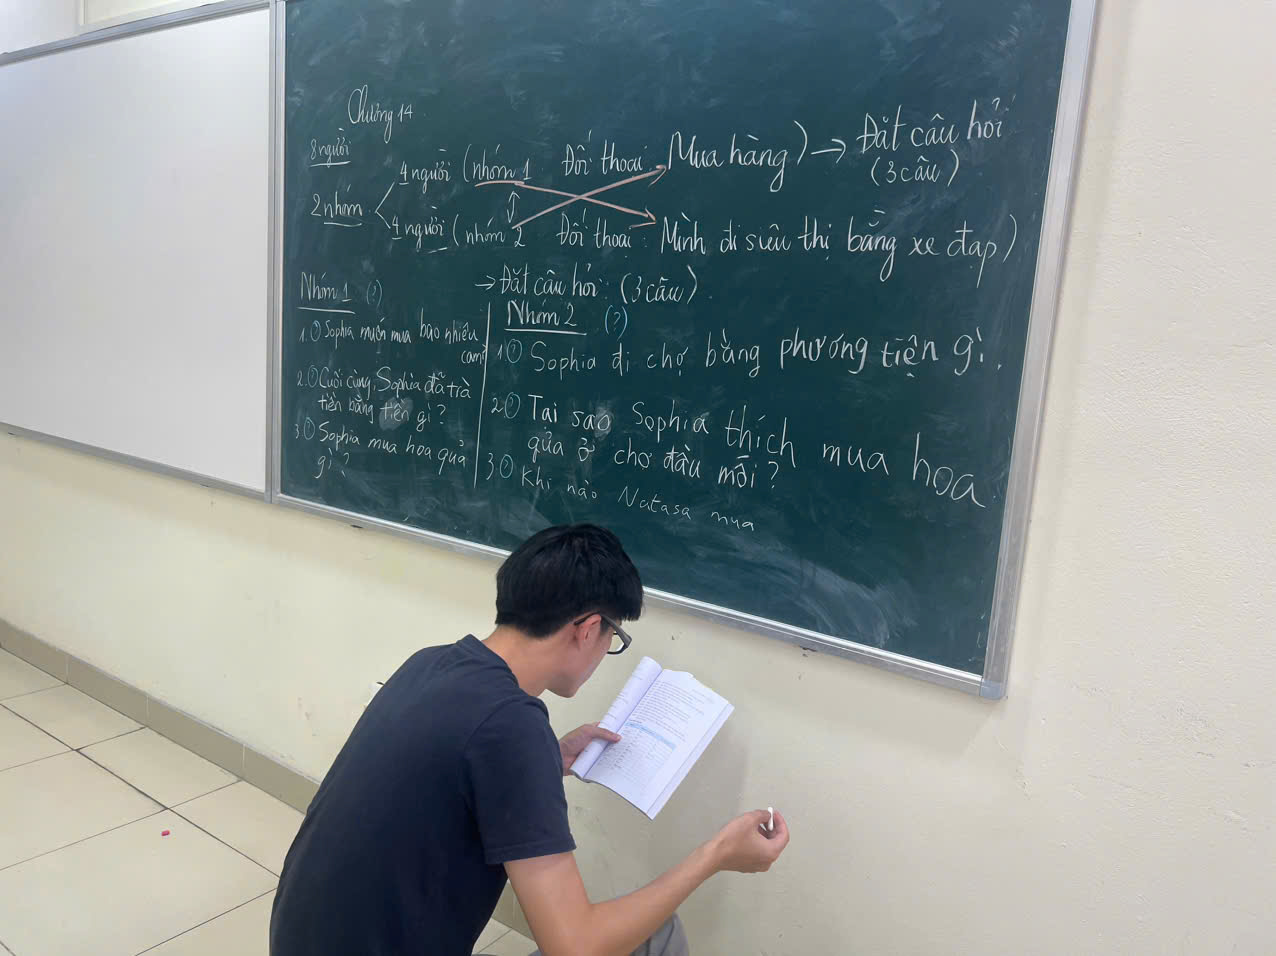 Chương 14
8 người
2 nhóm
4 người (nhóm 1 Đối thoại: Mua hàng) → Đặt câu hỏi
(3 câu)
4 người (nhóm 2 Đối thoại: Mình đi siêu thị bằng xe đạp)
→ Đặt câu hỏi: (3 câu).
Nhóm 1 (?)
1. ? Sophia muốn mua bao nhiêu
cam?
2. ? Cuối cùng, Sophia đã trả
tiền bằng tiền gì?
3. ? Sophia mua hoa quả
gì?
Nhóm 2 (?)
1 ? Sophia đi chợ bằng phương tiện gì.
2 ? Tại sao Sophia thích mua hoa
qủa ở chợ đầu mối?
3 ? Khi nào Natasa mua